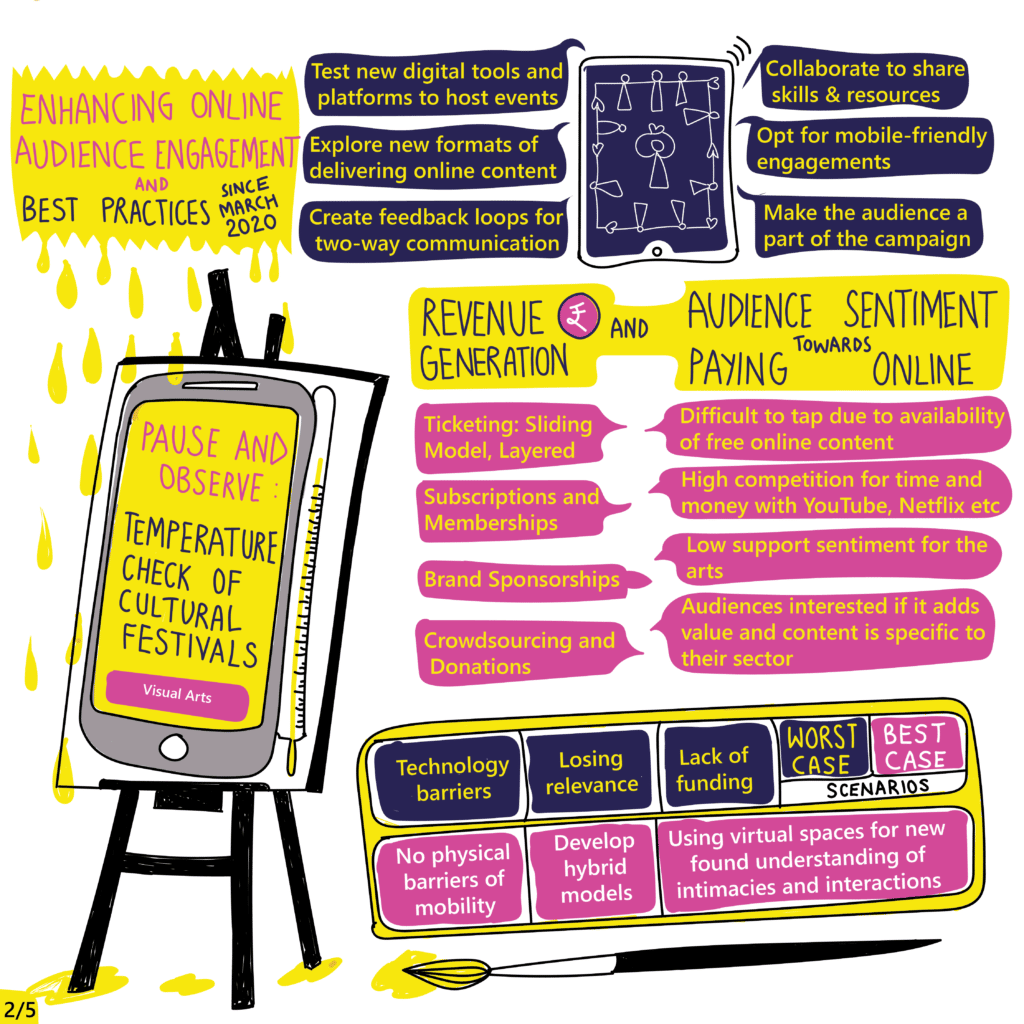 ENHANCING ONLINE
AUDIENCE ENGAGEMENT
AND
BEST PRACTICES SINCE
MARCH
2020
Test new digital tools and
platforms to host events
Explore new formats of
delivering online content
Create feedback loops for
two-way communication
Collaborate to share
skills & resources
Opt for mobile-friendly
engagements
Make the audience a
part of the campaign
PAUSE AND
OBSERVE :
TEMPERATURE
CHECK OF
CULTURAL
FESTIVALS
Visual Arts
REVENUE ₹ AND
GENERATION
AUDIENCE SENTIMENT
TOWARDS
PAYING ONLINE
Ticketing: Sliding
Model, Layered
Subscriptions and
Memberships
Brand Sponsorships
Crowdsourcing and
Donations
Difficult to tap due to availability
of free online content
High competition for time and
money with YouTube, Netflix etc
Low support sentiment for the
arts
Audiences interested if it adds
value and content is specific to
their sector
Technology
barriers
Losing
relevance
Lack of
funding
WORST
CASE
BEST
CASE
SCENARIOS
No physical
barriers of
mobility
Develop
hybrid
models
Using virtual spaces for new
found understanding of
intimacies and interactions
2/5